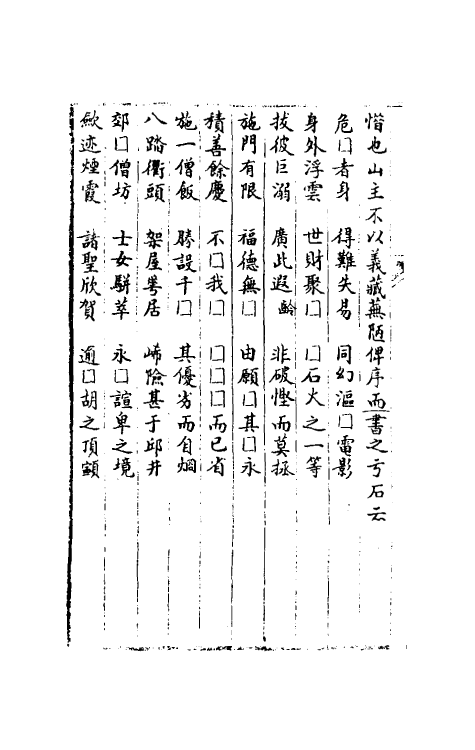 惜也山主不以義藏蕪陋俾序而書之于石云
危□者身　得難失易　同幻漚□電影
身外浮雲　世財聚□　□石火之一等
拔彼巨溺　廣此遐齡　非破慳而莫拯
施門有限　福德無□　由願□其□永
積善餘慶　不□我□　□□□而已省
施一僧飯　勝設千□　其優劣而自烱
八踏衢頭　架屋㝢居　崄險甚于邱井
郊□僧坊　士女駢萃　永□諠卑之境
歛迹煙霞　諸聖欣賀　逾□胡之頂顙